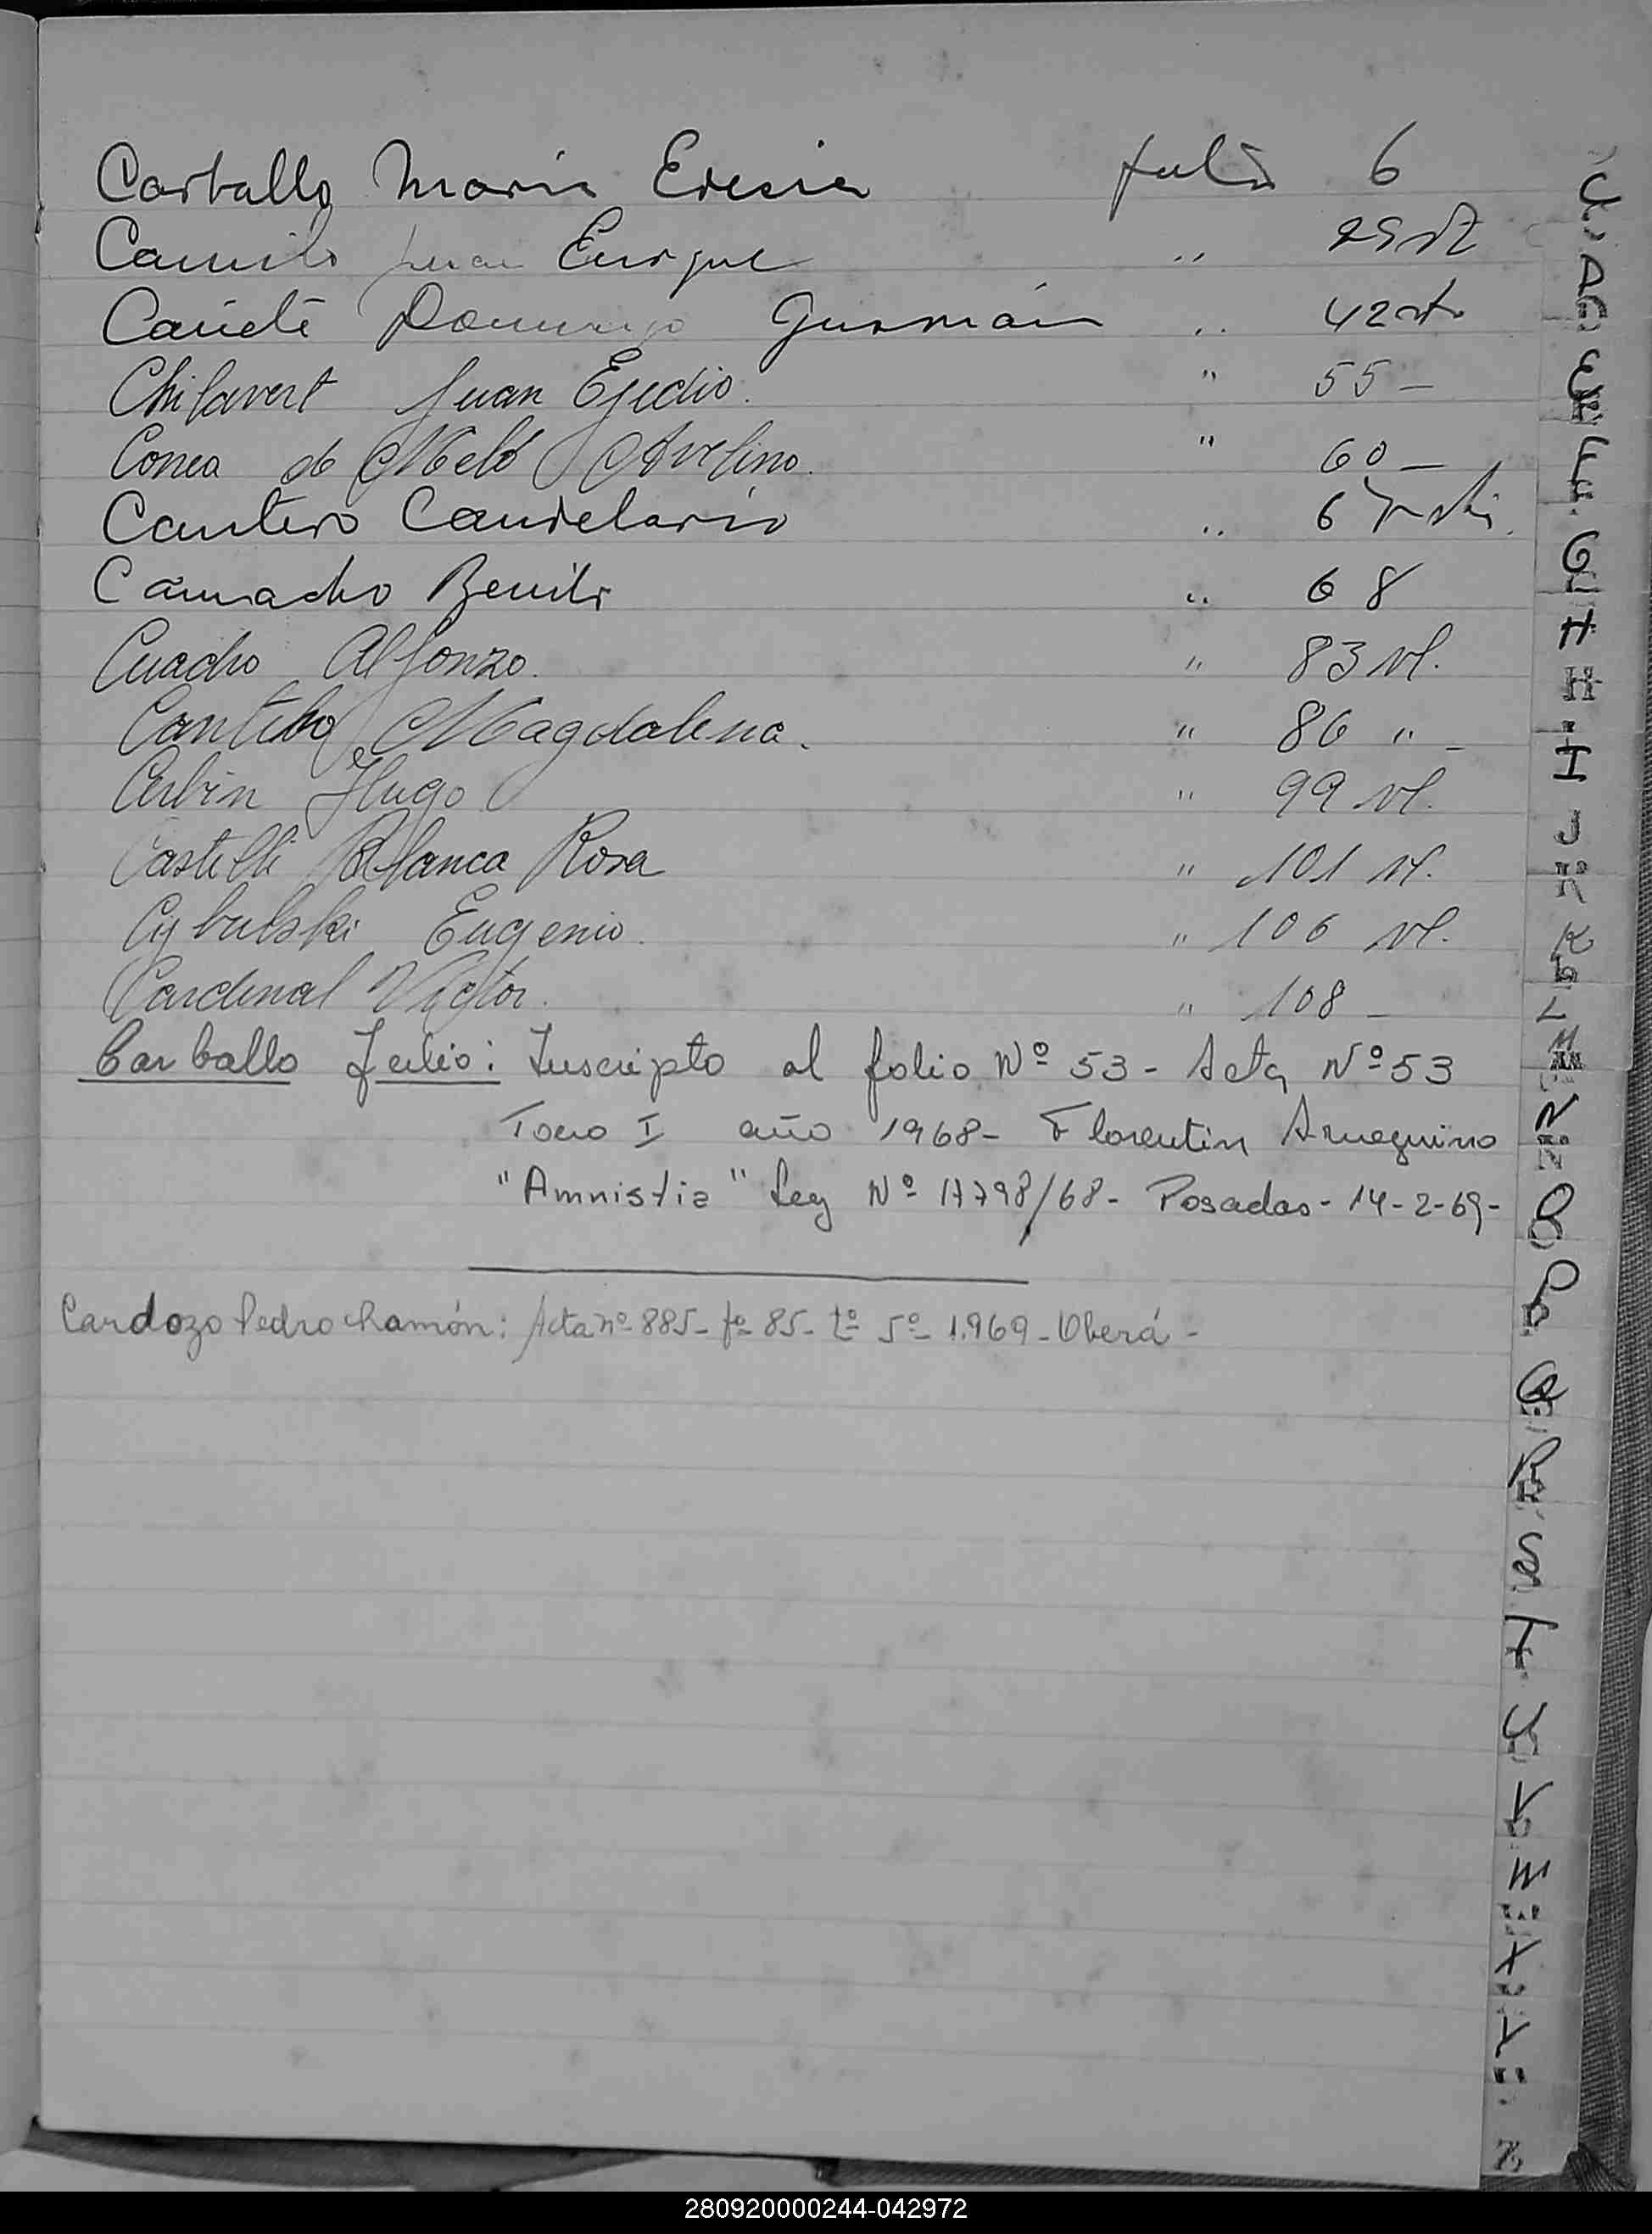 Carballo María folio 6
Camilo Juan Enrique " 29 vt
Cañete Domingo Guzmán " 42 vt.
Chilavert Juan Ejidio. " 55 -
Correa de Melo Avelino. " 60 -
Cantero Candelario " 67
Camacho Benito " 68
Cuadro Alfonzo. " 83 vt.
Magdalena. " 86 " -
Hugo " 99 vt.
Castelli Blanca Rosa " 101 vt.
Cybulski Eugenio. " 106 vt.
Cardenal Victor. " 108 -
Carballo Julio: Inscripto al folio Nº 53 - Acta Nº 53
Tomo I año 1968 - Florentin Ameguino
"Amnistia" Ley Nº 17798/68 - Posadas - 14-2-69 -
Cardozo Pedro Ramón: Acta nº 885 - fº 85 - tº 5º - 1.969 - Oberá -
C
D
E
F
G
H
I
J
K
L
M
N
O
P
Q
R
S
T
U
V
W
X
Y
Z
280920000244-042972